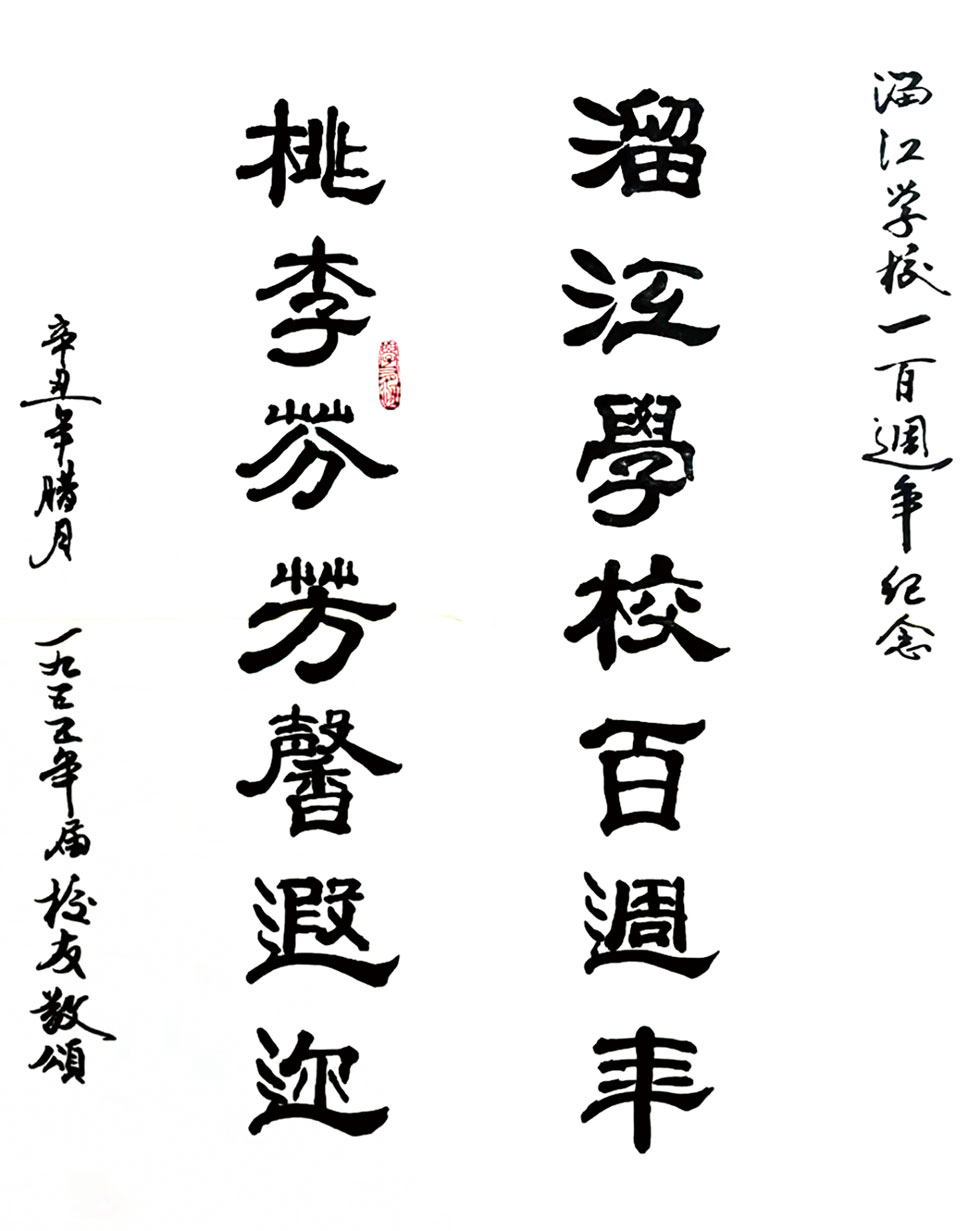 溜江学校一百週年纪念
溜江學校百週年
桃李芬芳馨遐迩
辛丑年腊月 一九五五年届校友敬頌